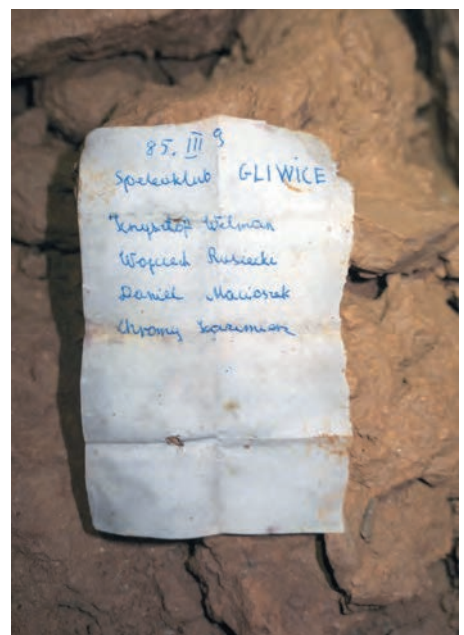 85. III 9
Speleoklub GLIWICE
Krzysztof Wilman
Wojciech Rusiecki
Daniel Macioszek
Chromy Kazimierz